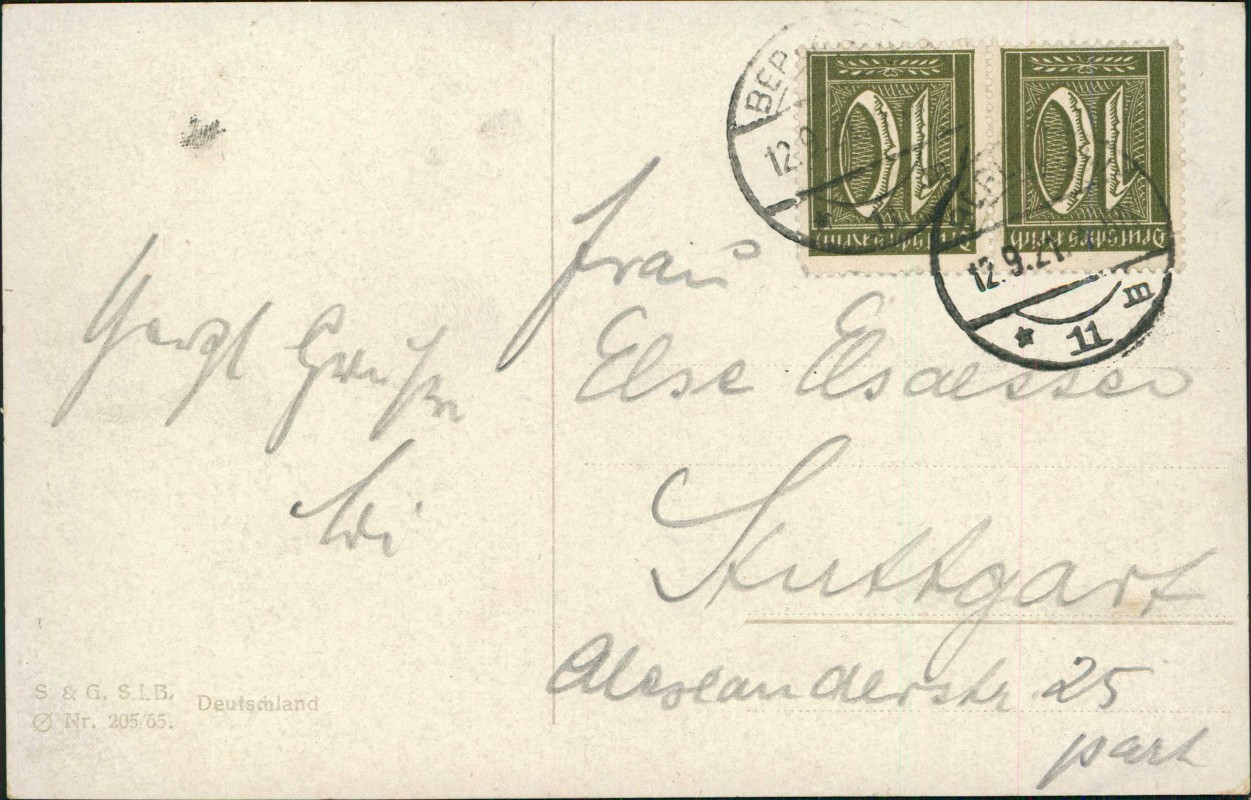 BER
12.9
10
10
Deutsches Reich
Deutsches Reich
12.9.21
* 11 m
Frau
Else Elsaesser
Stuttgart
Alexanderstr. 25
part
Herzl Grüße
S & G. S.i.B. Deutschland
Nr. 205/65.